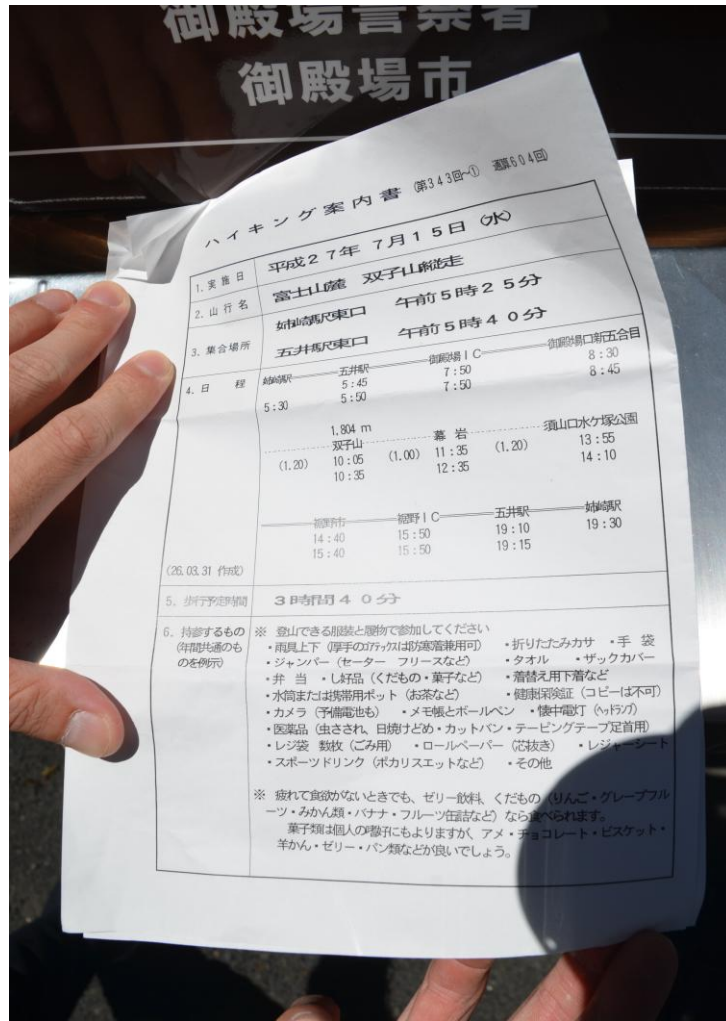 御殿場警察署
御殿場市
ハイキング案内書 (第343回～① 通算604回)
1. 実施日 平成27年 7月15日 (水)
2. 山行名 富士山麓 双子山縦走
3. 集合場所 姉崎駅東口 午前5時25分
五井駅東口 午前5時40分
4. 日 程 姉崎駅 五井駅 御殿場IC 御殿場口新五合目
5:45 7:50 8:30
5:30 5:50 7:50 8:45
1,804 m
双子山 幕岩 須山口水ケ塚公園
(1.20) 10:05 (1.00) 11:35 (1.20) 13:55
10:35 12:35 14:10
裾野市 裾野IC 五井駅 姉崎駅
14:40 15:50 19:10 19:30
15:40 15:50 19:15
(26.03.31 作成)
5. 歩行予定時間 3時間40分
6. 持参するもの ※ 登山できる服装と履物で参加してください
(年間共通のも ・雨具上下 (厚手のゴアテックスは防寒着兼用可) ・折りたたみカサ ・手 袋
のを例示) ・ジャンパー (セーター フリースなど) ・タオル ・ザックカバー
・弁 当 ・し好品 (くだもの・菓子など) ・着替え用下着など
・水筒または携帯用ポット (お茶など) ・健康保険証 (コピーは不可)
・カメラ (予備電池も) ・メモ帳とボールペン ・懐中電灯 (ヘッドランプ)
・医薬品 (虫さされ、日焼けどめ・カットバン・テーピングテープ足首用)
・レジ袋 数枚 (ごみ用) ・ロールペーパー (芯抜き) ・レジャーシート
・スポーツドリンク (ポカリスエットなど) ・その他
※ 疲れて食欲がないときでも、ゼリー飲料、くだもの (りんご・グレープフル
ーツ・みかん類・バナナ・フルーツ缶詰など) なら食べられます。
菓子類は個人の嗜好にもよりますが、アメ・チョコレート・ビスケット・
羊かん・ゼリー・パン類などが良いでしょう。